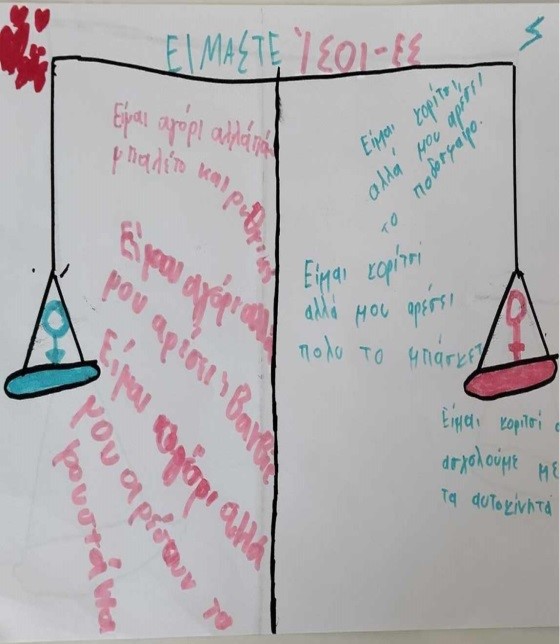 ΕΙΜΑΣΤΕ ΊΣΟΙ-ΕΣ
Είμαι αγόρι αλλά πάω
μπαλέτο και ρυθμική
Είμαι αγόρι αλλά
μου αρέσει η Barbie
Είμαι αγόρι αλλά
μου αρέσουν τα
φουστάνια
Είμαι κορίτσι,
αλλά μου αρέσει
το ποδόσφαιρο.
Είμαι κορίτσι
αλλά μου αρέσει
πολυ το μπάσκετ
Είμαι κοριτσί
ασχολούμε με
τα αυτοκίνητα